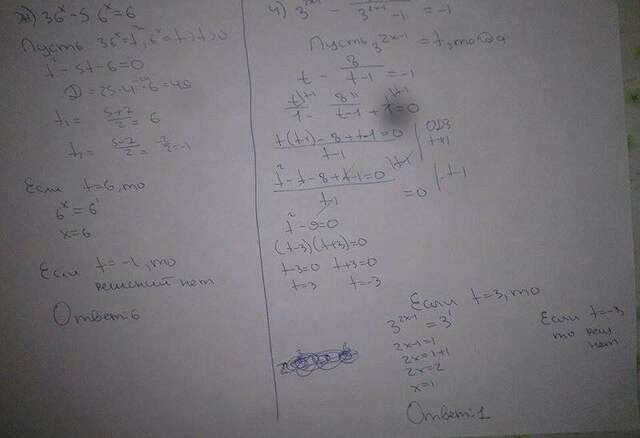 ж) 36ˣ-5 6ˣ=6
Пусть 36ˣ=t², 6ˣ=t, t>0
t²-5t-6=0
D=25-4·-6=49
t₁= (5+7)/2 = 6
t₁= (5-7)/2 = -2/2=-1
Если t=6, то
6ˣ=6¹
x=6
Если t=-1, то
решений нет
Ответ: 6
4) 3²ˣ⁻¹ - /(3²ˣ⁻¹-1) =-1
Пусть 3²ˣ⁻¹ =t, тогда
t - 8/(t-1) =-1
t/1 - 8/(t-1) + 1=0
(t(t-1)-8+t-1=0)/(t-1) | ОДЗ
t≠1
(t²-t-8+t-1=0)/(t-1) =0
t²-9=0
(t-3)(t+3)=0
t-3=0 t+3=0
t=3 t=-3
Если t=3, то
3²ˣ⁻¹=3¹
2x-1=1
2x=1+1
2x=2
x=1
Ответ: 1
Если t=-3,
то реш
нет